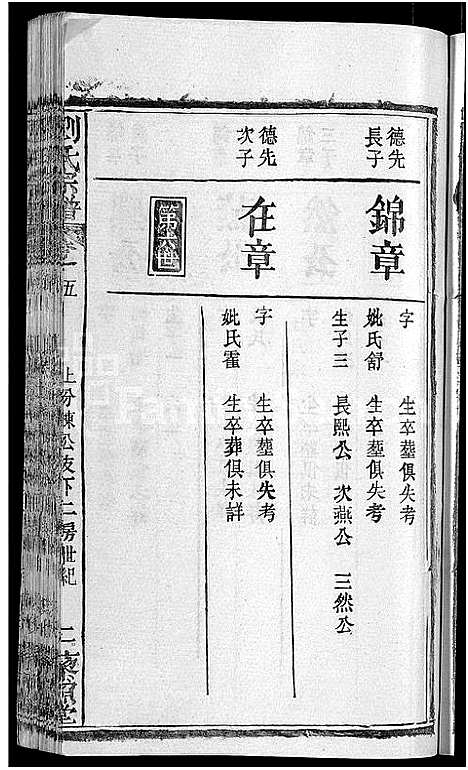 德先
長子
錦章
字　生卒塟俱失考
妣氏舒　生卒塟俱失考
生子三　長熙公　次燕公　三然公
德先
次子
在章
字　生卒塟俱失考
妣氏霍　生卒葬俱未詳
第六世
劉氏宗譜
五
上份棟公支下二房世紀
二
堂